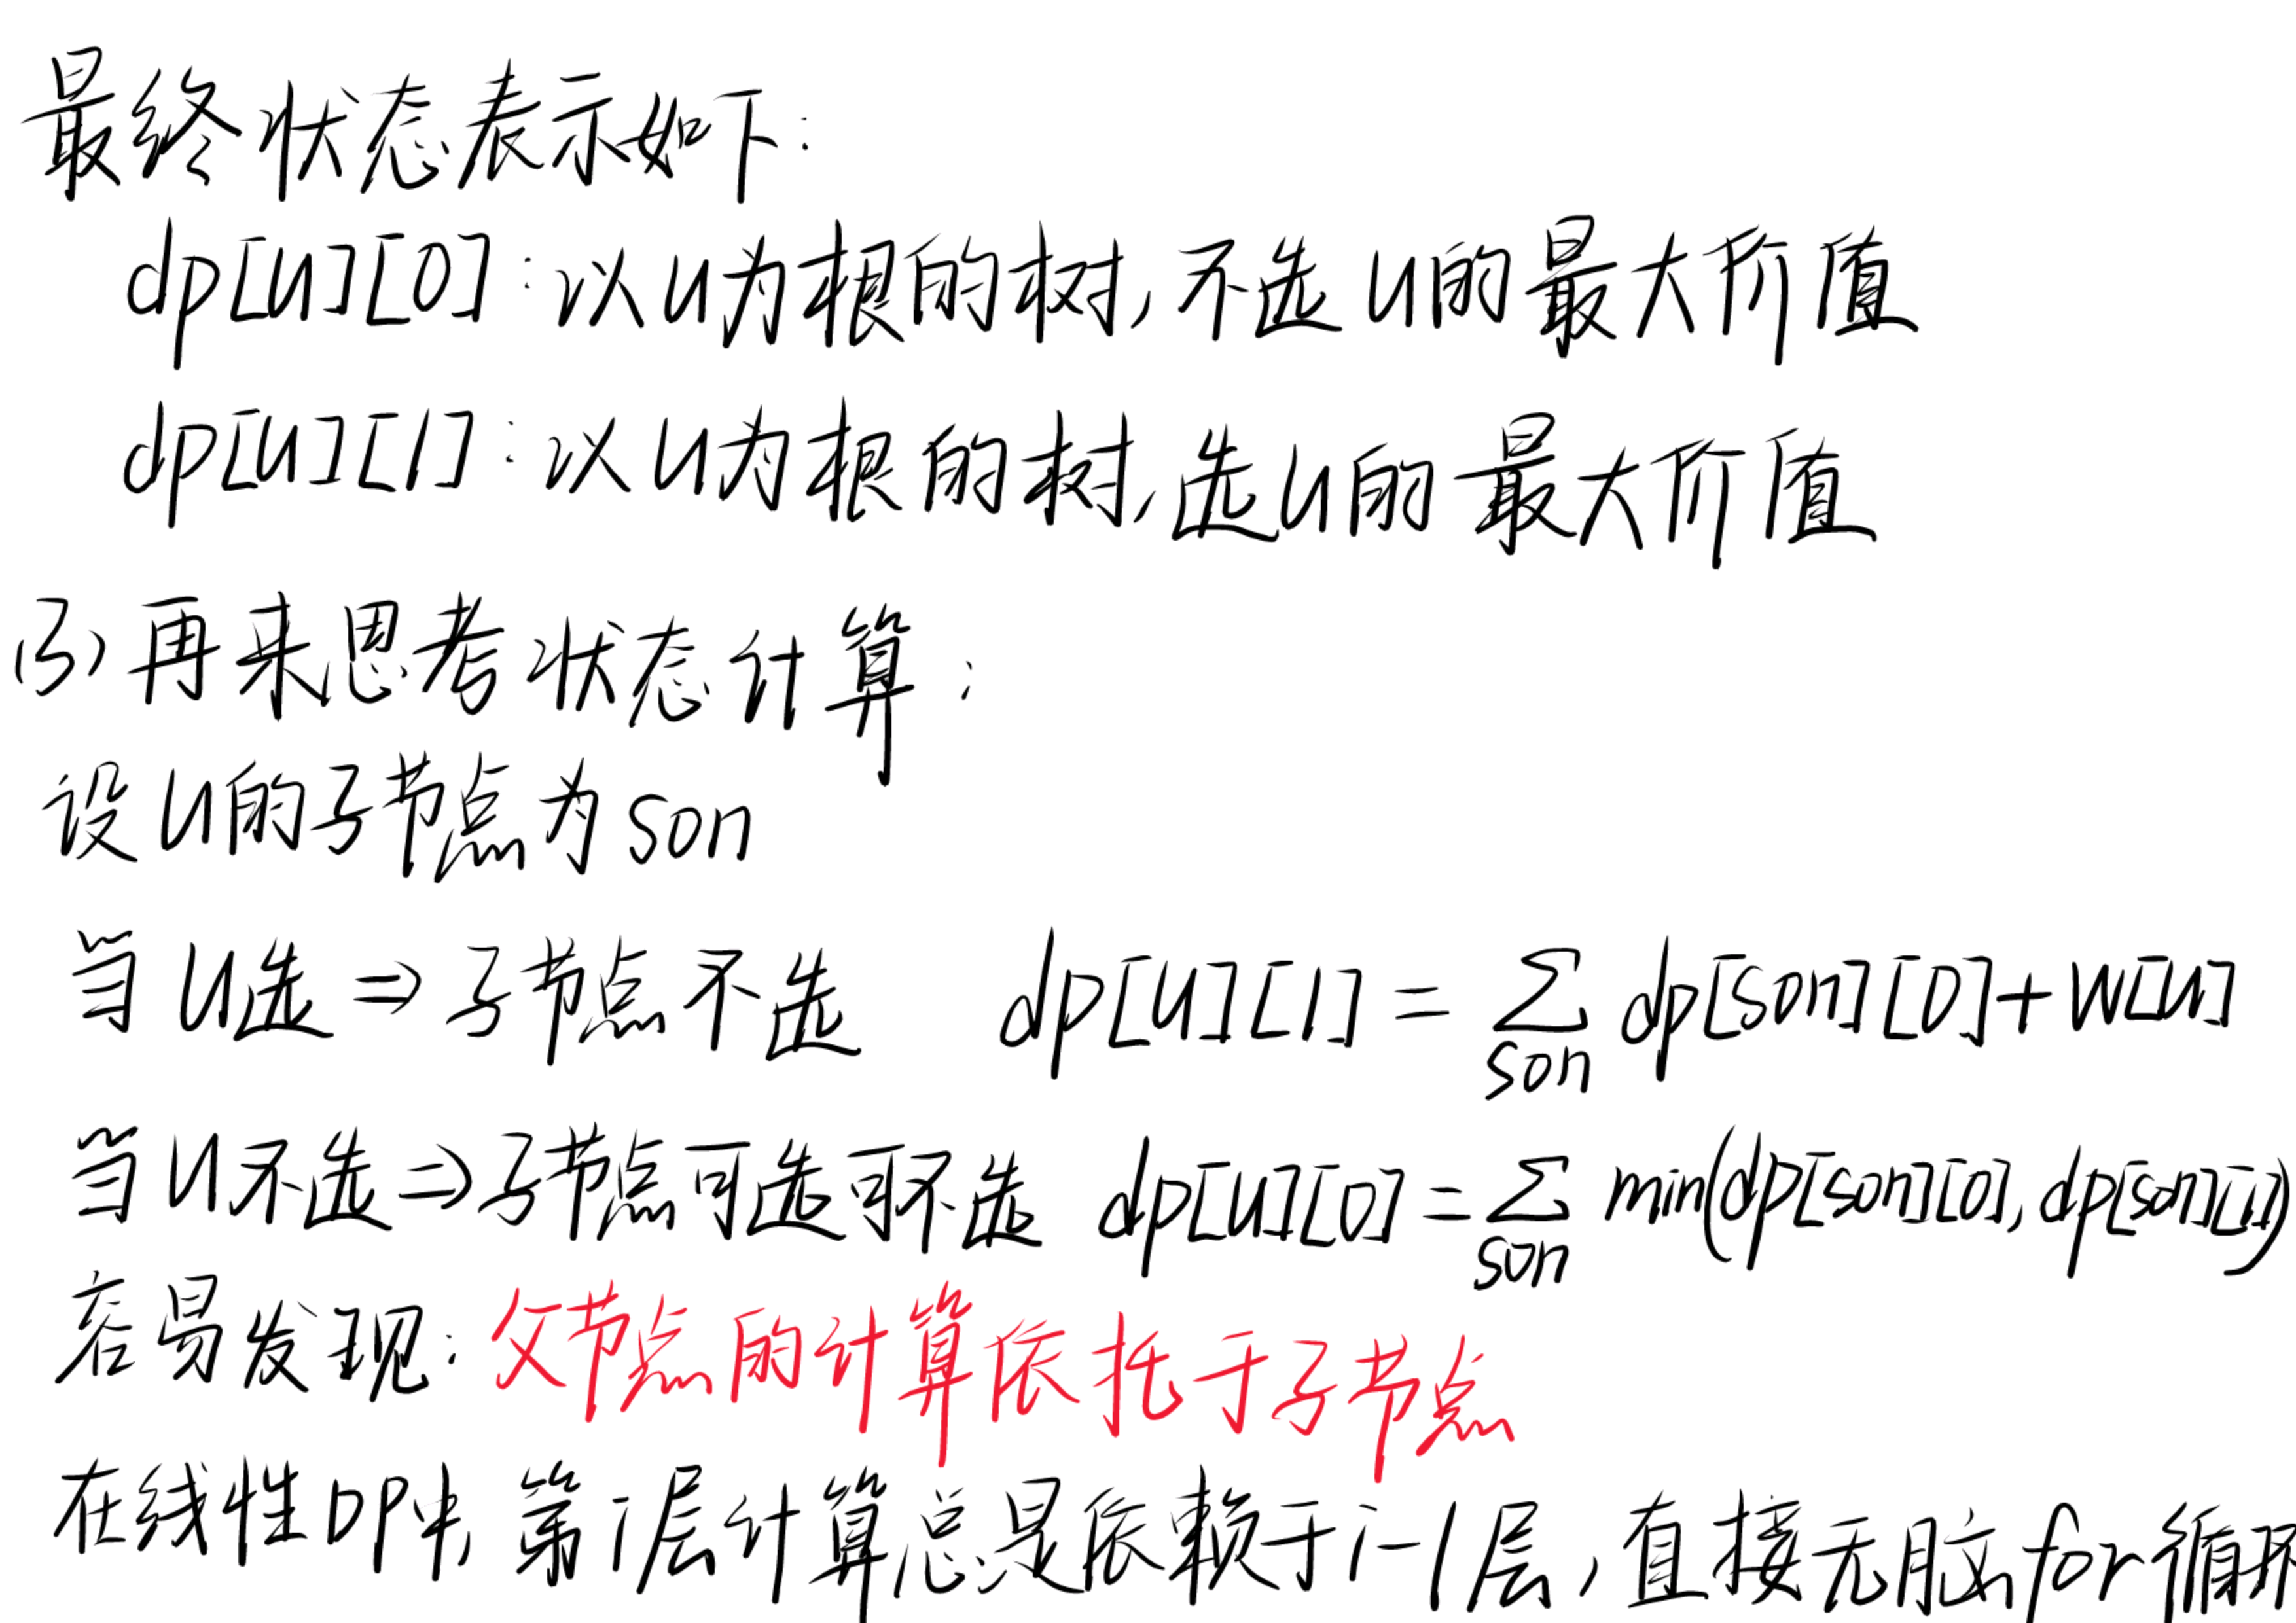 最终状态表示如下:
dp[u][0]:以u为根的树,不选u的最大价值
dp[u][1]:以u为根的树,选u的最大价值
(3)再来思考状态计算:
设u的子节点为son
当u选⇒子节点不选 dp[u][1]=∑son dp[son][0]+w[u]
当u不选⇒子节点可选可不选 dp[u][0]=∑son min(dp[son][0],dp[son][1])
容易发现:父节点的计算依托于子节点
在线性DP中,第i层计算总是依赖于i-1层,直接无脑for循环